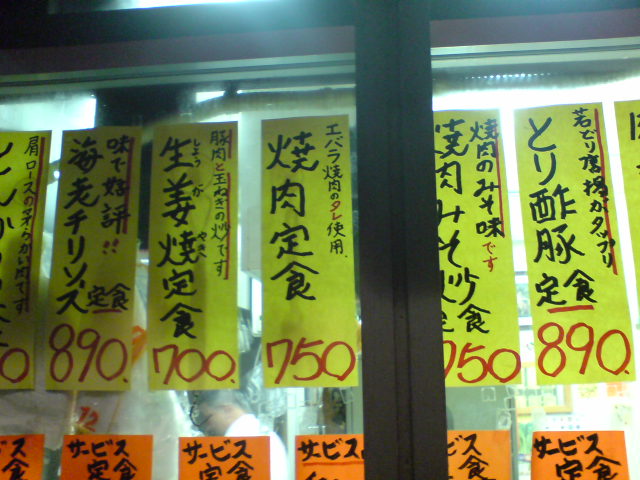 肩ロースの
味で好評!!
海老チリソース
定食
890.
豚肉と玉ねぎの炒です
生姜焼定食
しょうが
やき
700.
エバラ焼肉のタレ使用.
焼肉定食
750
焼肉のみそ味です
焼肉みそ炒
定食
750
若どり唐揚がタップリ
とり酢豚
定食
890.
サービス
定食
サービス
定食
サービス
定食
サービス
サービス
定食
サービス
定食